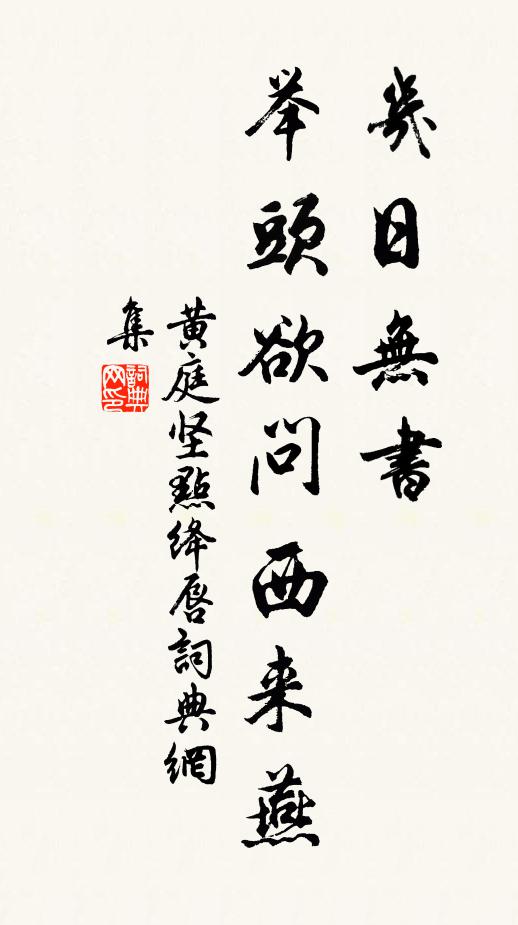 幾日無書
举頭欲問西来燕
黄庭坚點绛唇詞典網
集
詞典
网印